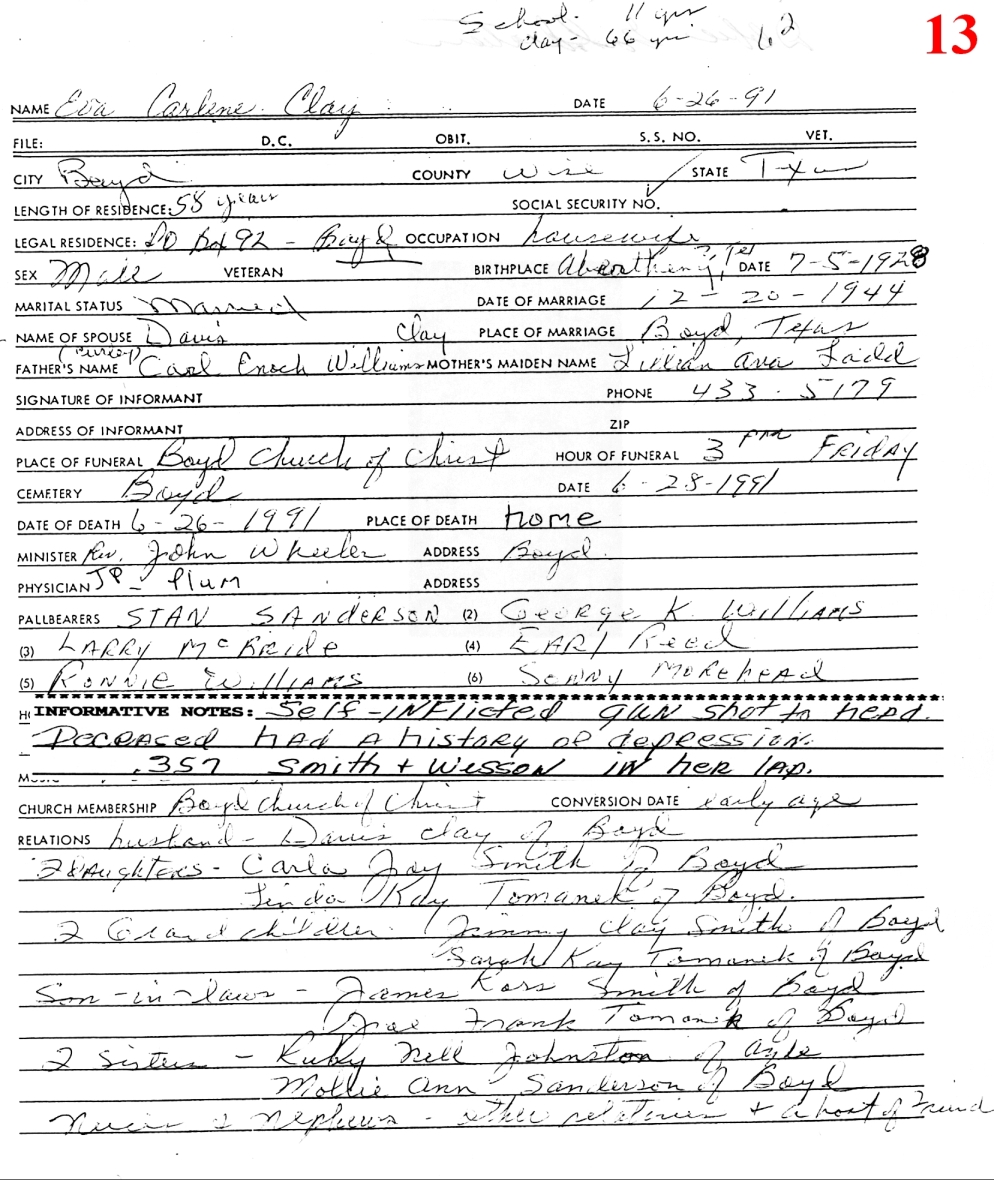 School. 11 yrs
Clay - 66 yrs 62
13
NAME Eva Carlene Clay DATE 6-26-91
FILE: D.C. OBIT. S.S. NO. VET.
CITY Boyd COUNTY Wise STATE Texas
LENGTH OF RESIDENCE: 58 years SOCIAL SECURITY NO.
LEGAL RESIDENCE: PO Box 92 - Boyd OCCUPATION housewife
SEX Male VETERAN BIRTHPLACE DATE 7-5-1928
MARITAL STATUS Married DATE OF MARRIAGE 12-20-1944
NAME OF SPOUSE Davis Clay PLACE OF MARRIAGE Boyd, Texas
FATHER'S NAME Carl Enoch Williams MOTHER'S MAIDEN NAME Lillian Ava Ladd
SIGNATURE OF INFORMANT PHONE 433-5179
ADDRESS OF INFORMANT ZIP
PLACE OF FUNERAL Boyd Church of Christ HOUR OF FUNERAL 3 PM FRIDAY
CEMETERY Boyd DATE 6-28-1991
DATE OF DEATH 6-26-1991 PLACE OF DEATH home
MINISTER Rev. John Wheeler ADDRESS Boyd.
PHYSICIAN JP - Plum ADDRESS
PALLBEARERS STAN SANDERSON (2) George K. Williams
(3) LARRY McBride (4) EARl Reed
(5) RONNIE WILLIAMS (6) Sonny Morehead
INFORMATIVE NOTES: Self-INFlicted gun shot to head.
Deceased had a history of depression.
.357 Smith + Wesson in her lap.
CHURCH MEMBERSHIP Boyd Church of Christ CONVERSION DATE early age
RELATIONS husband - Davis Clay of Boyd
2 daughters - Carla Jay Smith of Boyd
Linda Kay Tomanek of Boyd.
2 Grandchildren - Jimmy Clay Smith of Boyd
Sarah Kay Tomanek of Boyd
Son-in-laws - James Ross Smith of Boyd
Joe Frank Tomanek of Boyd
2 Sisters - Ruby Nell Johnston of Azle
Mollie Ann Sanderson of Boyd
Nieces & Nephews - other relatives + a host of Friend